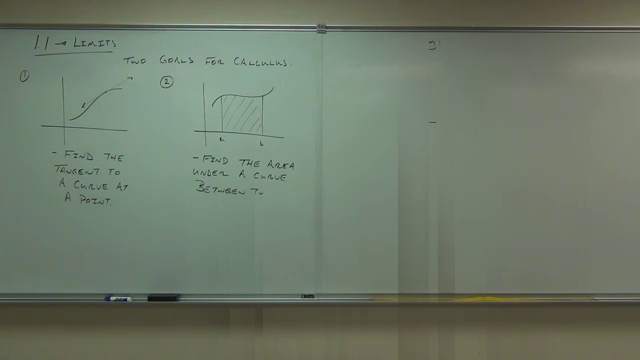 11 → LIMITS
TWO GOALS FOR CALCULUS.
①
②
a b
- FIND THE
TANGENT TO
A CURVE AT
A POINT.
- FIND THE AREA
UNDER A CURVE
BETWEEN